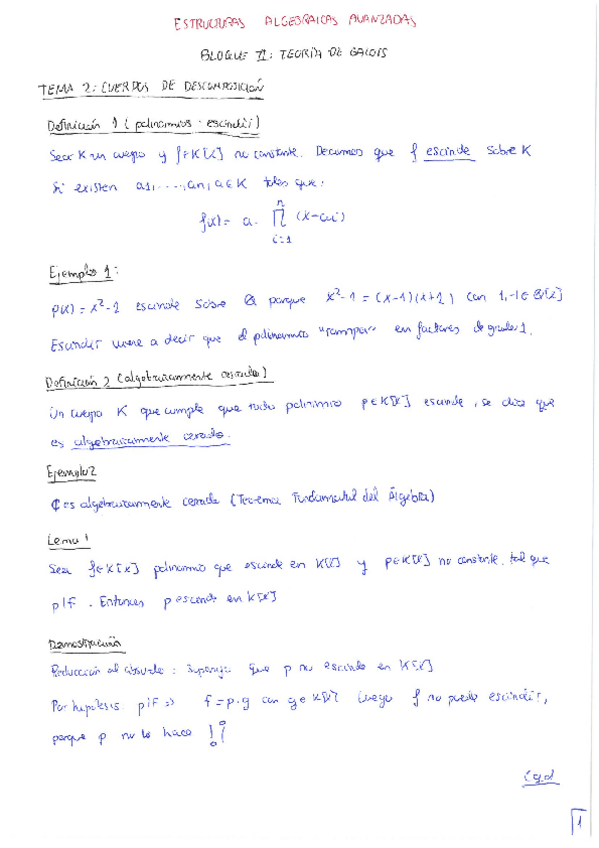 ESTRUCTURAS ALGEBRAICAS AVANZADAS
BLOQUE II: TEORÍA DE GALOIS
TEMA 2: CUERPOS DE DESCOMPOSICIÓN
Definición 1 (polinomios: escindir)
Sea K un cuerpo y f∈K[x] no constante. Decimos que f escinde sobre K
Si existen a1,...,an, a∈K tales que:
f(x) = a · ∏ᵢ₌₁ⁿ (x-ai)
Ejemplo 1:
p(x) = x²-1 escinde sobre Q porque x²-1 = (x-1)(x+1) con 1,-1∈Q[x]
Escindir viene a decir que el polinomio "rompe" en factores de grado 1.
Definición 2 (algebraicamente cerrado)
Un cuerpo K que cumple que todo polinomio p∈K[x] escinde, se dice que
es algebraicamente cerrado.
Ejemplo 2
ℂ es algebraicamente cerrado (Teorema Fundamental del Álgebra)
Lema 1
Sea f∈K[x] polinomio que escinde en K[x] y p∈K[x] no constante. tal que
p|f. Entonces p escinde en K[x]
Demostración
Reducción al absurdo: Supongo que p no escinde en K[x]
Por hipótesis p|f => f=p·g con g∈K[x] luego f no puede escindir,
porque p no lo hace !¡
Cqd
1